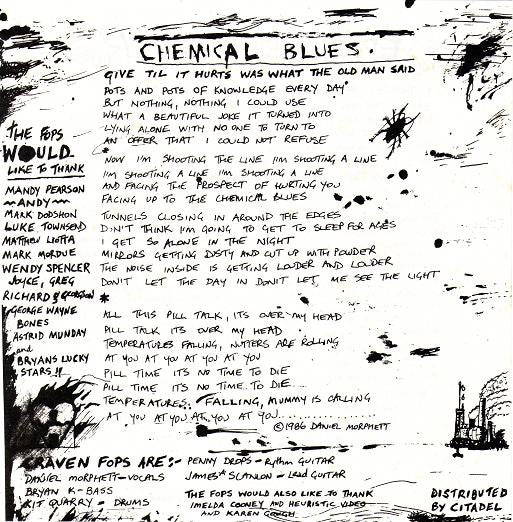 CHEMICAL BLUES.
GIVE TIL IT HURTS WAS WHAT THE OLD MAN SAID
POTS AND POTS OF KNOWLEDGE EVERY DAY
BUT NOTHING, NOTHING I COULD USE
WHAT A BEAUTIFUL JOKE IT TURNED INTO
LYING ALONE WITH NO ONE TO TURN TO
AN OFFER THAT I COULD NOT REFUSE
* NOW I'M SHOOTING THE LINE I'M SHOOTING A LINE
I'M SHOOTING A LINE I'M SHOOTING A LINE
AND FACING THE PROSPECT OF HURTING YOU
FACING UP TO THE CHEMICAL BLUES
TUNNELS CLOSING IN AROUND THE EDGES
DIDN'T THINK I'M GOING TO GET TO SLEEP FOR AGES
I GET SO ALONE IN THE NIGHT
MIRRORS GETTING DUSTY AND CUT UP WITH POWDER
THE NOISE INSIDE IS GETTING LOUDER AND LOUDER
DON'T LET THE DAY IN DON'T LET ME SEE THE LIGHT
*
ALL THIS PILL TALK, IT'S OVER MY HEAD
PILL TALK IT'S OVER MY HEAD
TEMPERATURES FALLING, NUTTERS ARE ROLLING
AT YOU AT YOU AT YOU AT YOU
PILL TIME IT'S NO TIME TO DIE
PILL TIME IT'S NO TIME TO DIE....
TEMPERATURES FALLING, MUMMY IS CALLING
AT YOU AT YOU AT YOU AT YOU..............
©1986 DANIEL MORPHETT
THE FOPS
WOULD
LIKE TO THANK
MANDY PEARSON
~ANDY~
MARK DODSHON
LUKE TOWNSEND
MATTHEW LIOTTA
MARK MORDUE
WENDY SPENCER
JOYCE, GREG
RICHARD &
GEORGE WAYNE
BONES
ASTRID MUNDAY
and
BRYANS LUCKY
STARS!!
CRAVEN FOPS ARE:-
DANIEL MORPHETT-VOCALS
BRYAN K-BASS
KIT QUARRY - DRUMS
PENNY DROPS-Rythm GUITAR
JAMES SCANLON-Lead GUITAR
THE FOPS WOULD ALSO LIKE TO THANK
IMELDA COONEY AND HEURISTIC VIDEO
AND KAREN GOUGH
DISTRIBUTED
BY CITADEL